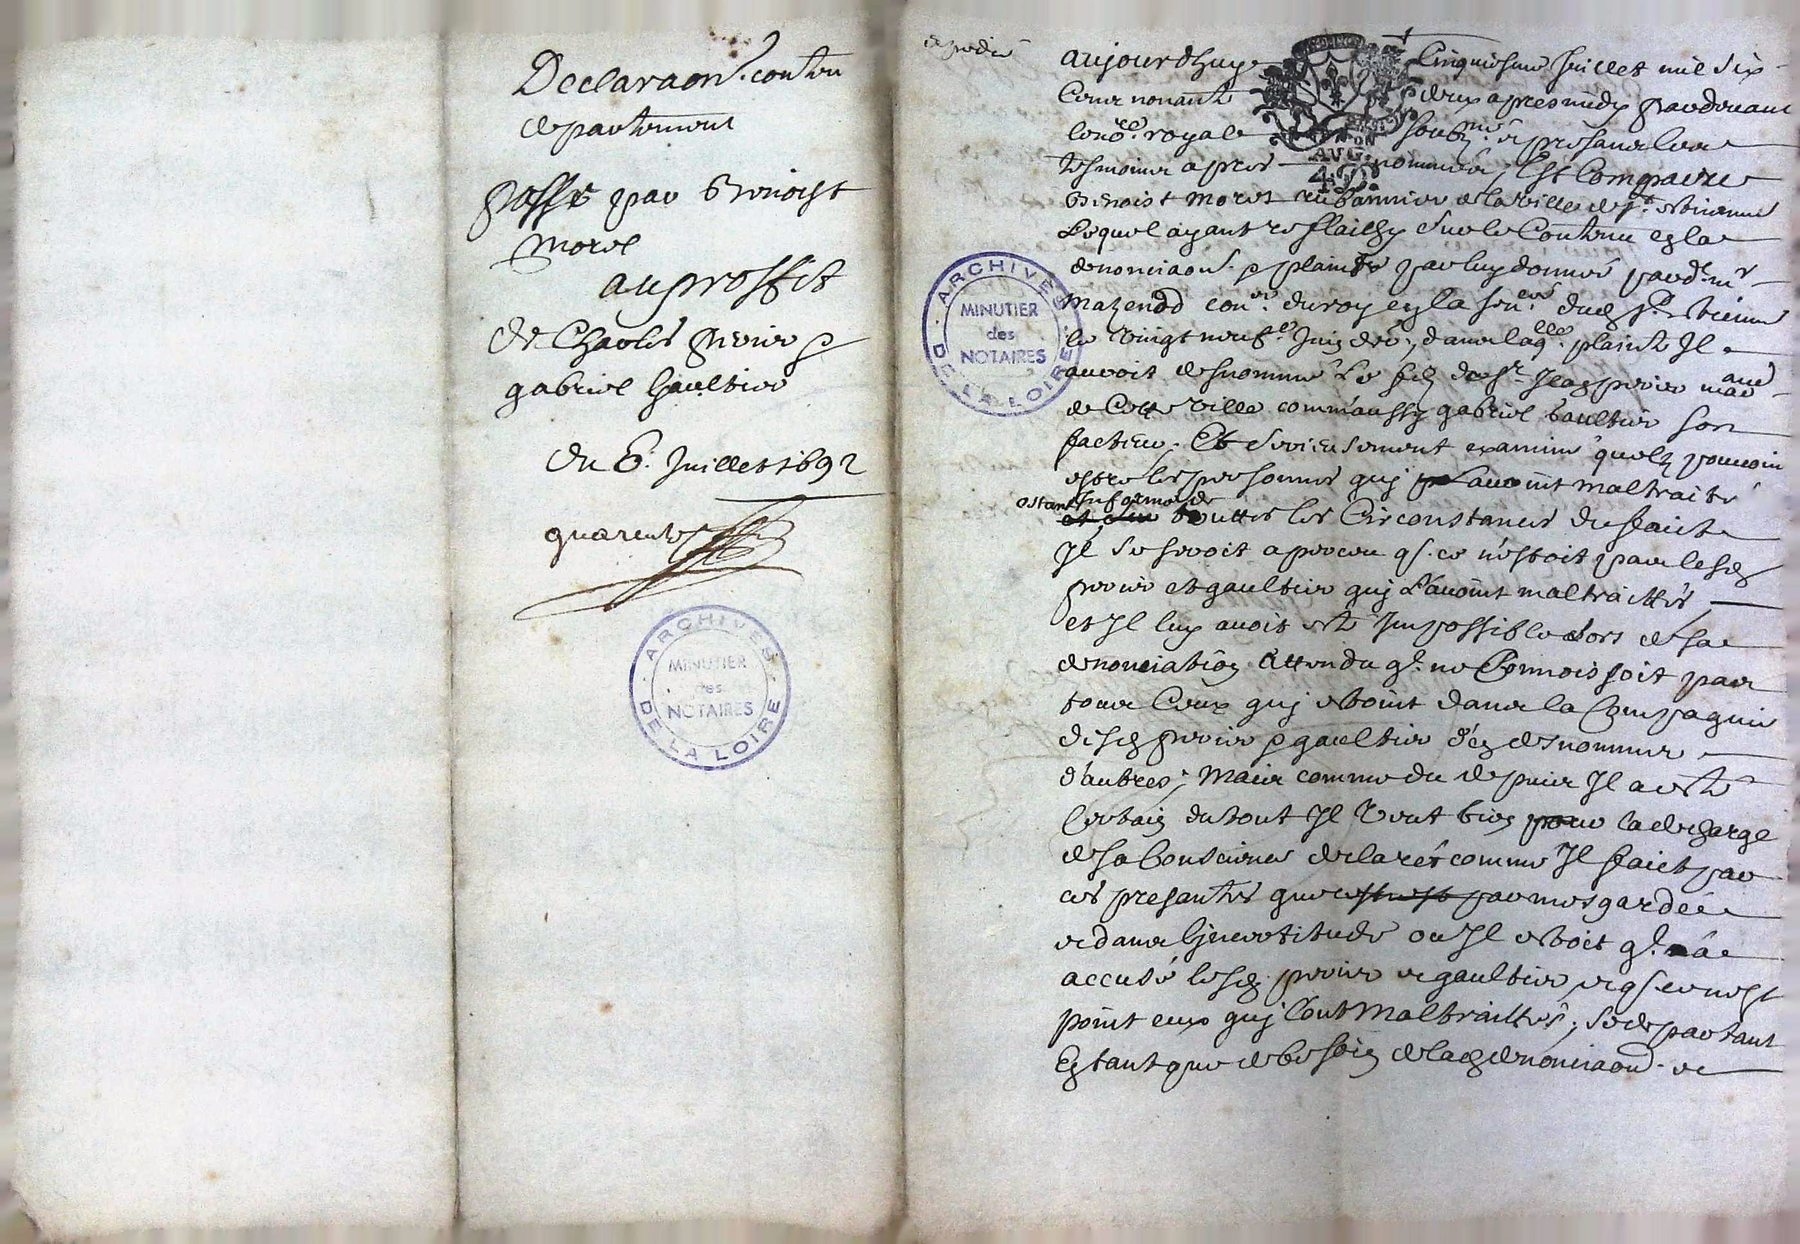 Declaraon. conten
departement
passé par Benoist
Morel
au proffit
de Charles Prvier &
gabriel Gaultier
du 6. Juillet 1692
quarente
ARCHIVES DE LA LOIRE
MINUTIER
des
NOTAIRES
expedié
aujourdhuy Cinquiesme Juillet mil six
Cens nonante deux apres midy pardevant
le no.re royal soubz.né & presans les
tesmoins apres nommés, Est Comparu
Benoist Morel rubannier de la ville de S.t Estienne
Lequel ayant reflechy sur le Contenu en la
denonciaon. & plainte par luy donnée pard.t m.r
Mazenod con.er du roy en la sen.cée dud. S.t Estienne
le vingt neuf.e Juin der., dans laq.lle plainte Il
auroit desnommé Le filz de s.r Jean march.and
de Cette ville comm'aussy gabriel Gaultier son
facteur. Et serieusement examiné quelz pouvoin
estre les personnes quy l'avoint maltraité
estant Informé de
touttes les Circonstances du faict
Il se seroit aperceu q. ce n'estoit pas lesd.
et gaultier quy L'avoint maltraittés,
et Il luy avoit esté Impossible lors de sa
denonciation attendu q.l ne Connoissoit pas
tous Ceux quy estoint dans la Compagnie
desd. & gaultier d'en desnommer
d'autres; Mais comme du depuis Il a esté
Certain du tout Il veut bien pour la descharge
de sa Conscience declarer comme Il faict par
ces presantes que par mesgardée
& dans l'incertitude ou Il estoit q.l a
accusé lesd. & gaultier & q. ce nest
point eux quy l'ont Maltraittés, se departant
En tant que de besoin de lad. denonciaon. &
AVG.
ARCHIVES DE LA LOIRE
MINUTIER
des
NOTAIRES